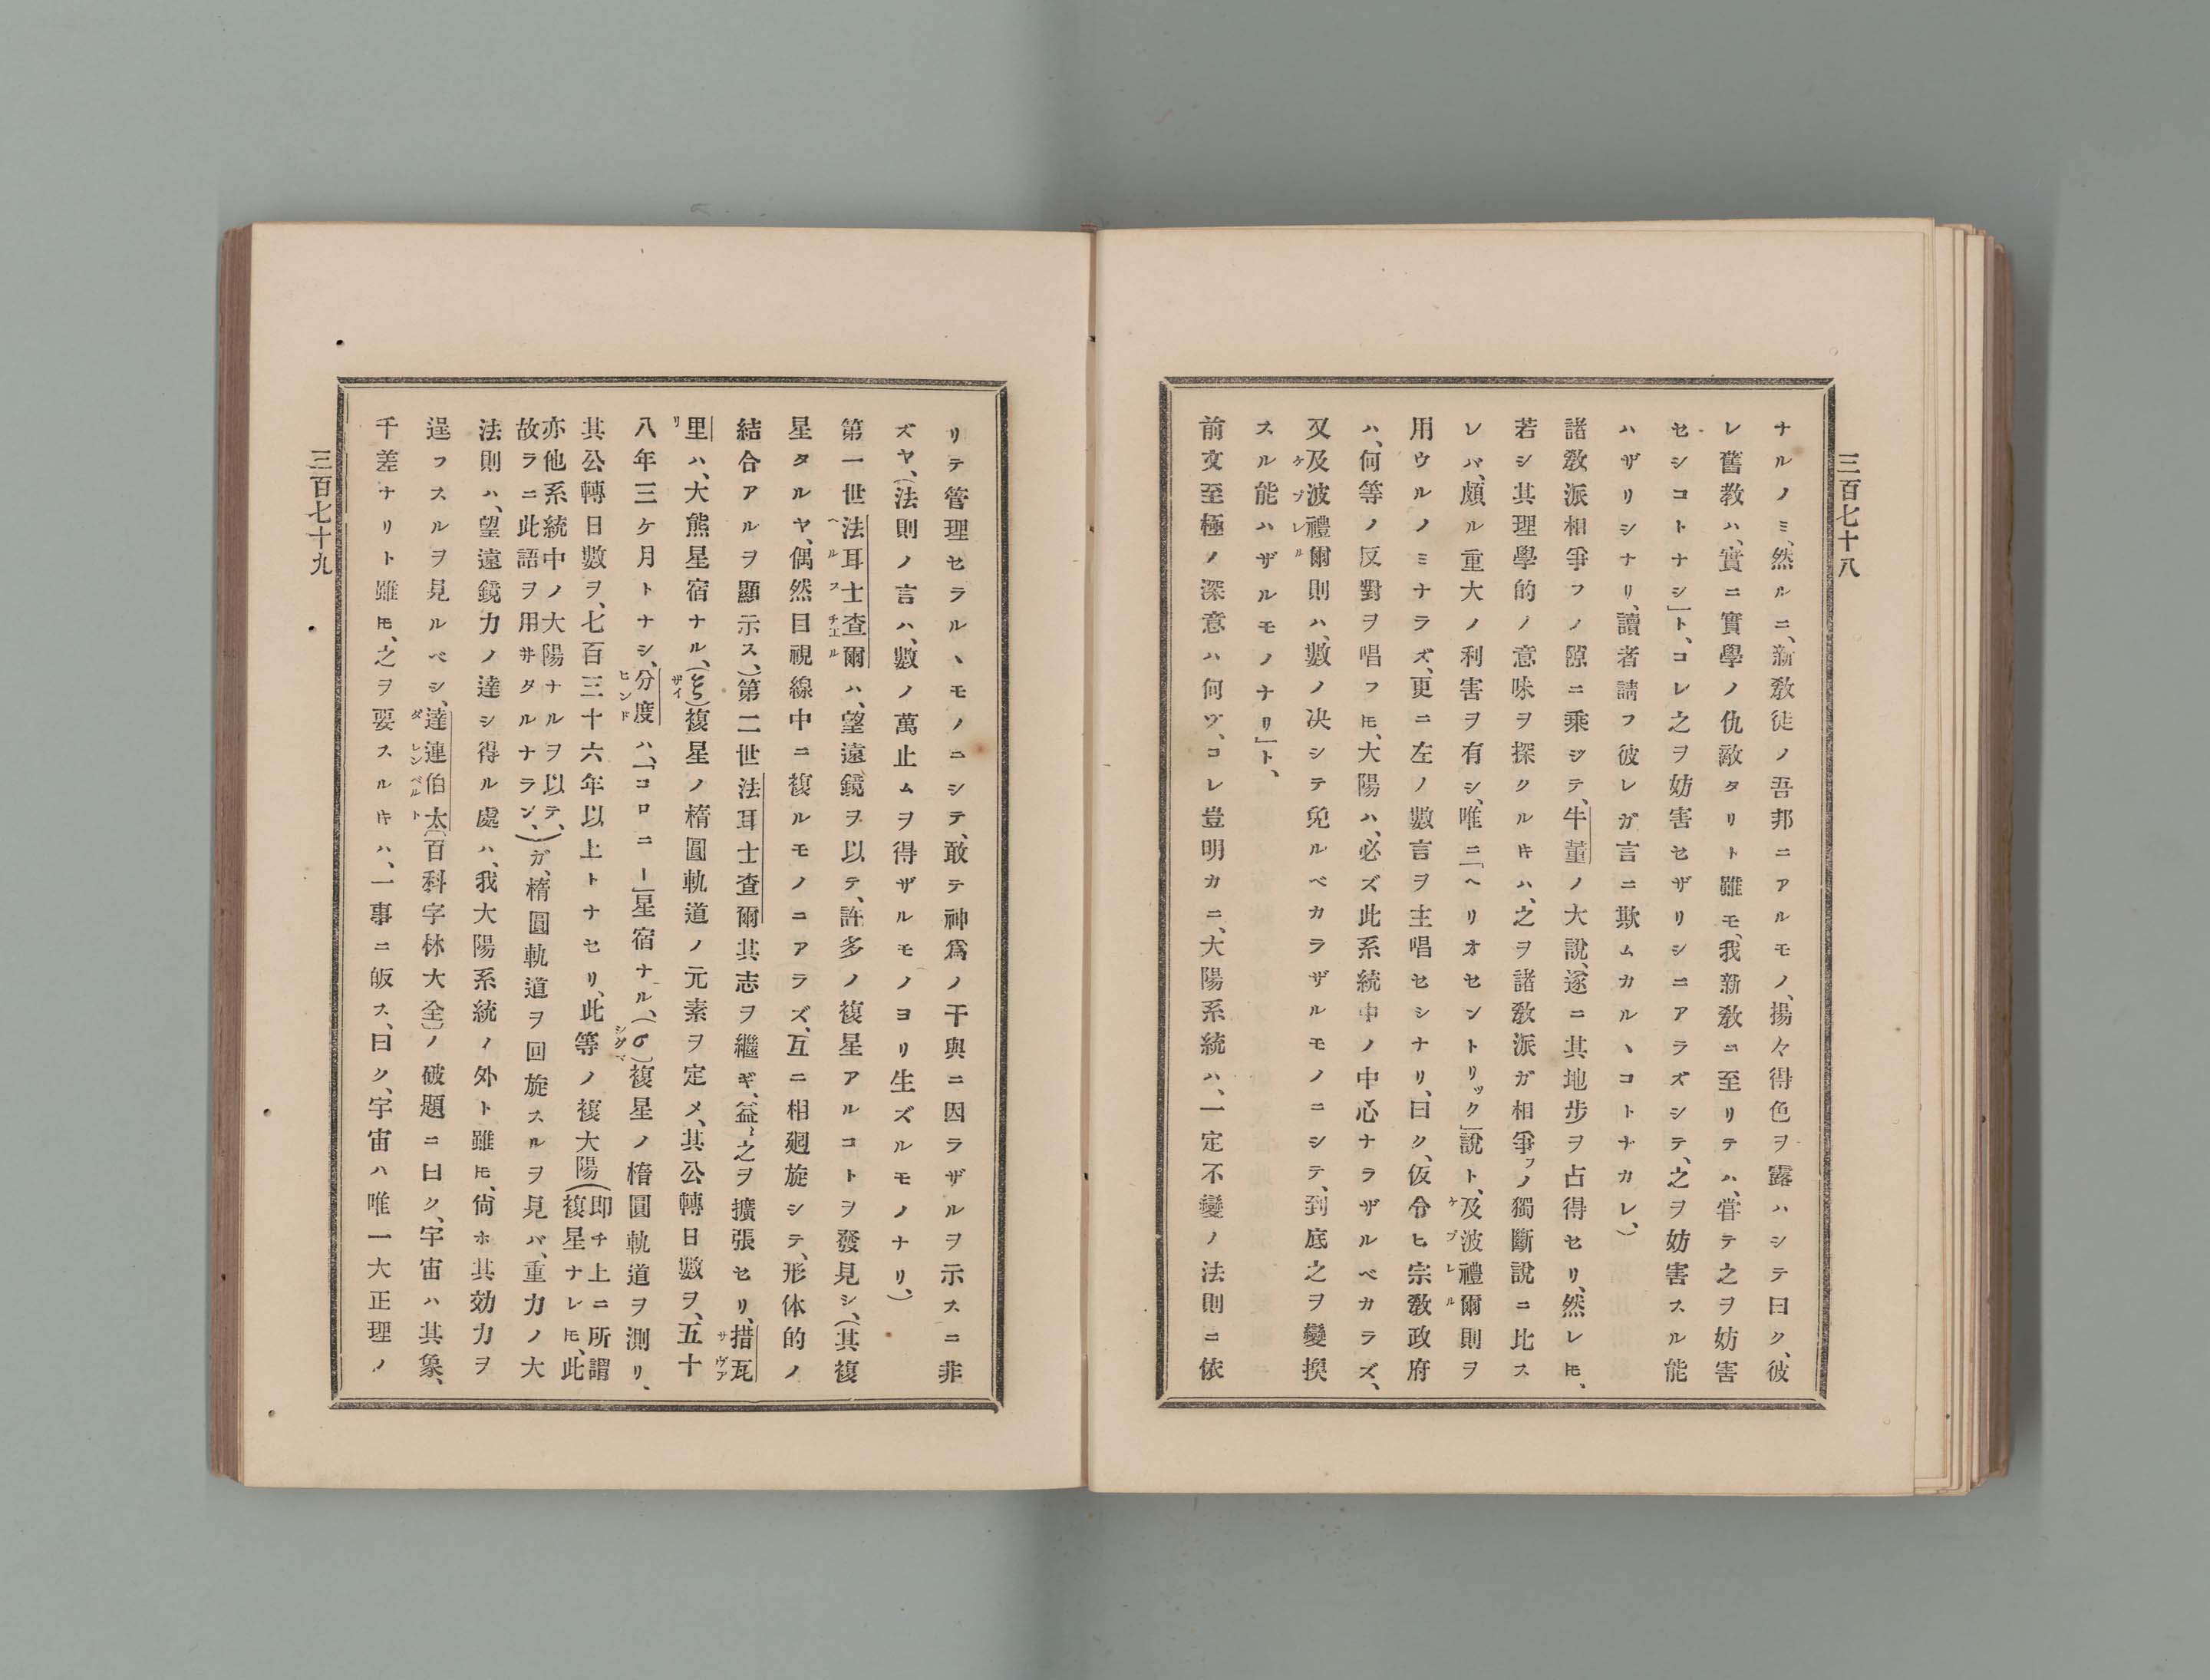 三百七十八
ナルノミ、然ルニ、新敎徒ノ吾邦ニアルモノ、揚々得色ヲ露ハシテ曰ク、彼
レ舊教ハ、實ニ實學ノ仇敵タリト雖モ、我新敎ニ至リテハ、甞テ之ヲ妨害
セシコトナシ」ト、コレ之ヲ妨害セザリシニアラズシテ、之ヲ妨害スル能
ハザリシナリ、讀者請フ彼レガ言ニ欺ムカルヽコトナカレ、)
諸敎派相爭フノ隙ニ乘ジテ、牛董ノ大說、遂ニ其地步ヲ占得セリ、然レ𪜈、
若シ其理學的ノ意味ヲ探クル𪜈ハ、之ヲ諸敎派ガ相爭フノ獨斷說ニ比ス
レバ、頗ル重大ノ利害ヲ有シ、唯ニ「ヘリオセントリック」說ト、及波禮爾則ヲ
用ウルノミナラズ、更ニ左ノ數言ヲ主唱セシナリ、曰ク、仮令ヒ宗敎政府
ハ、何等ノ反對ヲ唱フ𪜈、大陽ハ、必ズ此系統中ノ中心ナラザルベカラズ、
又及波禮爾則ハ、數ノ决シテ免ルベカラザルモノニシテ、到底之ヲ變換
スル能ハザルモノナリ」ト、
前文至極ノ深意ハ何ヅ、コレ豈明カニ、大陽系統ハ、一定不變ノ法則ニ依
リテ管理セラルヽモノニシテ、敢テ神爲ノ干與ニ因ラザルヲ示スニ非
ズヤ、(法則ノ言ハ、數ノ萬止ムヲ得ザルモノヨリ生ズルモノナリ、)
第一世法耳士查爾ハ、望遠鏡ヲ以テ、許多ノ複星アルコトヲ發見シ、(其複
星タルヤ、偶然目視線中ニ複ルモノニアラズ、互ニ相廻旋シテ、形体的ノ
結合アルヲ顯示ス、)第二世法耳士查爾其志ヲ繼ギ、益〻之ヲ擴張セリ、措瓦
里ハ、大熊星宿ナル、(ξ)複星ノ楕圓軌道ノ元素ヲ定メ、其公轉日數ヲ、五十
八年三ケ月トナシ、分度ハ、「コロニー」星宿ナル、(σ)複星ノ楕圓軌道ヲ測リ、
其公轉日數ヲ、七百三十六年以上トナセリ、此等ノ複大陽(即チ上ニ所謂複星ナレ𪜈、此
亦他系統中ノ大陽ナルヲ以テ、故ラニ此語ヲ用サダルナラン、)ガ、楕圓軌道ヲ回旋スルヲ見バ、重力ノ大
法則ハ、望遠鏡力ノ達シ得ル處ハ、我大陽系統ノ外ト雖𪜈、尙ホ其効力ヲ
逞フスルヲ見ルベシ、達連伯太(百科字林大全)ノ破題ニ曰ク、宇宙ハ其象、
千差ナリト雖𪜈、之ヲ要スル𪜈ハ、一事ニ皈ス、曰ク、宇宙ハ唯一大正理ノ
三百七十九